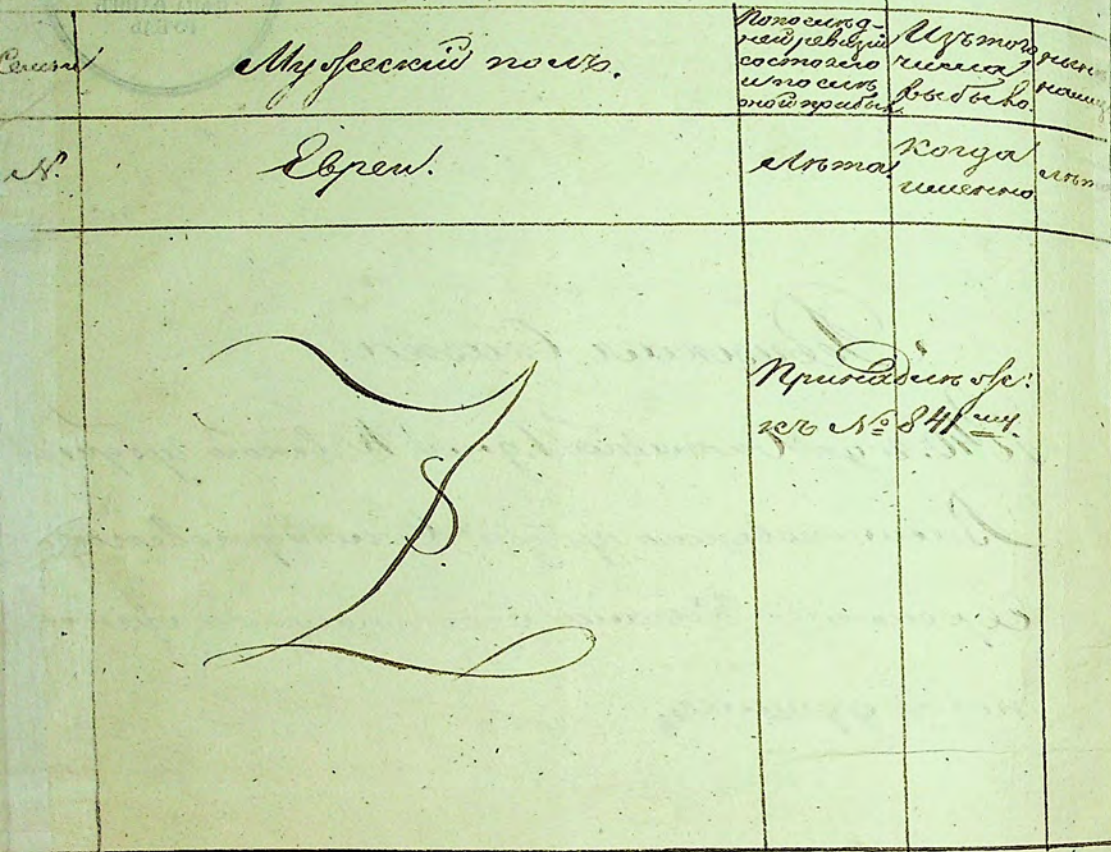 Семьи
Мужеский полъ.
По послѣд-
ней ревизіи
состояло
и послѣ
оной прибы
Изъ того
числа
выбыло
нынѣ
налиц
№
Евреи.
Лѣта
Когда
именно
лѣт
Принадлеж:
къ № 841